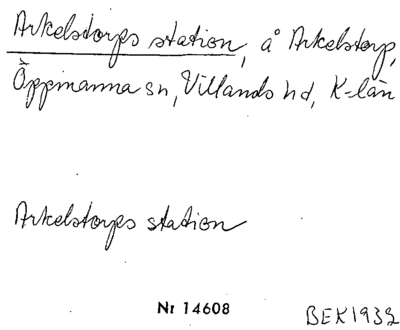 Arkelstorps station, å Arkelstorp,
Oppmanna sn, Villands hd, K-län
Arkelstorps station
Nr 14608
BEK 1932